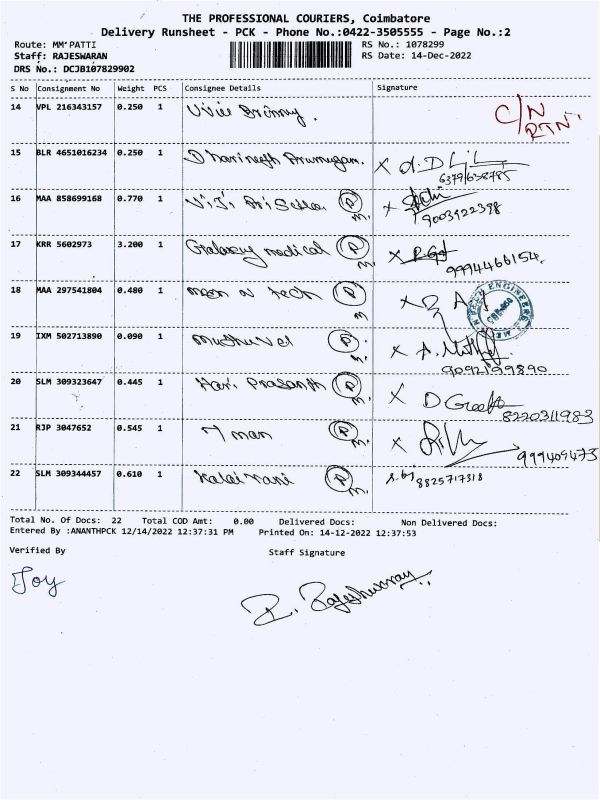 THE PROFESSIONAL COURIERS, Coimbatore
Delivery Runsheet - PCK - Phone No.:0422-3505555 - Page No.:2
Route: MM'PATTI RS No.: 1078299
Staff: RAJESWARAN RS Date: 14-Dec-2022
DRS No.: DCJB107829902
S No Consignment No Weight PCS Consignee Details Signature
14 VPL 216343157 0.250 1 C/N
RTN
15 BLR 4651016234 0.250 1 Dharineesh Arumugam. X
6379658785
16 MAA 858699168 0.770 1 P M. X
9003922398
17 KRR 5602973 3.200 1 Galaxy medical P M. X
9994466154
18 MAA 297541804 0.480 1 moon w Tech P M. X
ENGINEERS
19 IXM 502713890 0.090 1 Muthuvel P M. X
9092199890
20 SLM 309323647 0.445 1 Hari Prasanth P M. X D
8220311983
21 RJP 3047652 0.545 1 man P M. X
999409473
22 SLM 309344457 0.610 1 Kalai vani P M. 8825717318
Total No. Of Docs: 22 Total COD Amt: 0.00 Delivered Docs: Non Delivered Docs:
Entered By :ANANTHPCK 12/14/2022 12:37:31 PM Printed On: 14-12-2022 12:37:53
Verified By Staff Signature
Joy R. Rajeshwaran